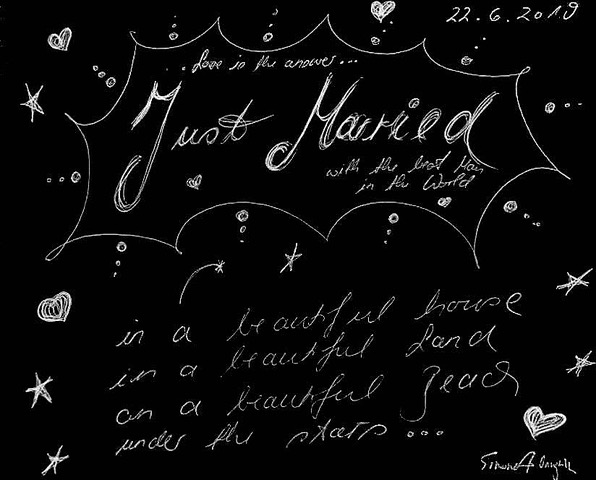 22.6.2019
. . Love is the answer...
Just Married
with the best Man
in the World
in a beautiful house
in a beautiful Land
on a beautiful Beach
under the stars ...